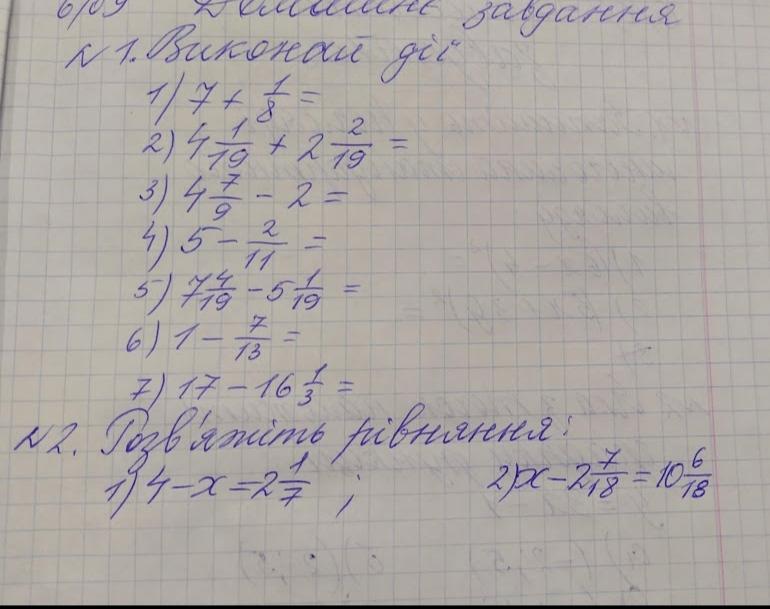 Домашнє завдання
№1. Виконай дії
1) 7 + 1/8 =
2) 4 1/19 + 2 2/19 =
3) 4 7/9 - 2 =
4) 5 - 2/11 =
5) 7 4/19 - 5 1/19 =
6) 1 - 7/13 =
7) 17 - 16 1/3 =
№2. Розв'яжіть рівняння:
1) 4 - x = 2 1/7 ; 2) x - 2 7/18 = 10 6/18